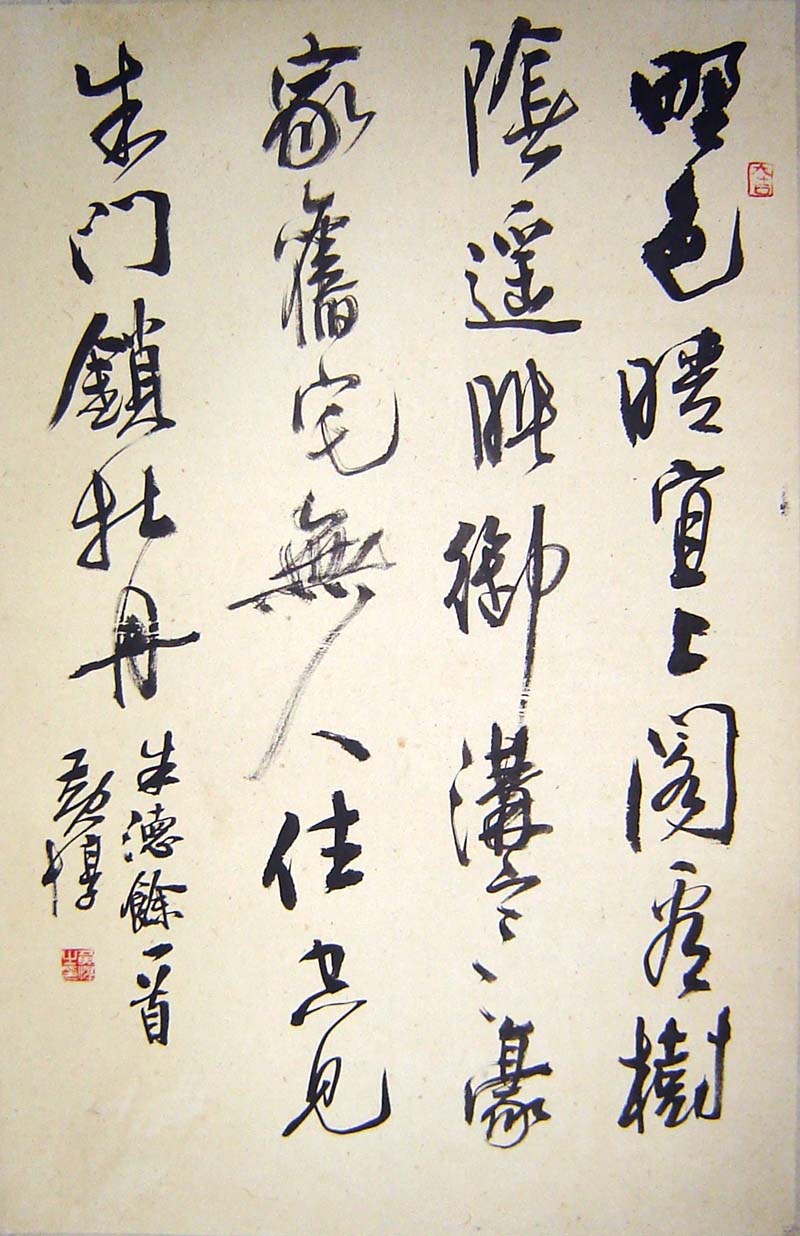 大吉
野色晴宜上閣看樹
陰遥映御溝寒豪
家舊宅無人住空見
朱門鎖牡丹
朱德餘一首